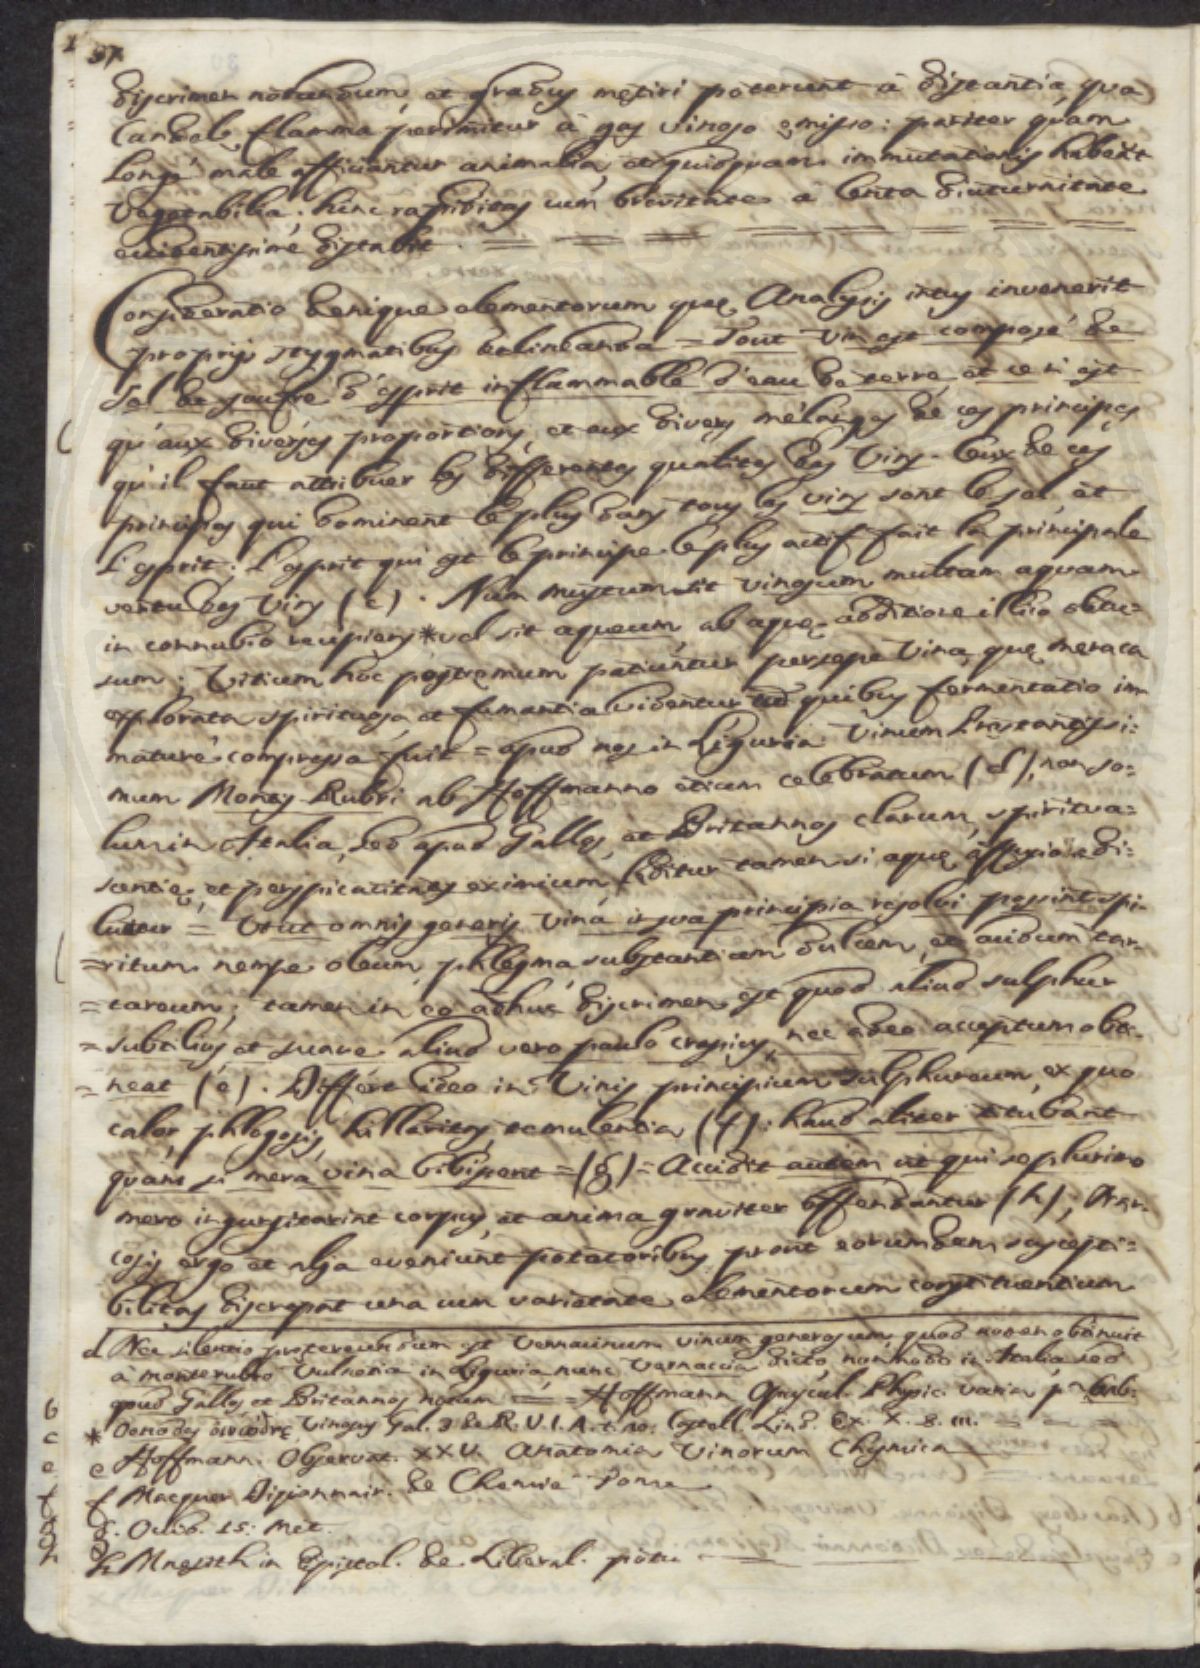 37
discrimen notandum, et gradus metiri poterunt à distantia, qua
Candelę flamma perimitur à gas vinoso emisso: pariter quam
longè male afficiantur animalia, et quidquam immutationis habeat
Vegetabilia. hinc rapiditas cum brevitate à lenta diuturnitate
evidentissimè distabit.
Consideratio denique elementorum quę Analysis intus invenerit
proprijs stygmatibus delineanda = Tout Vin est composé de
sel de soufre d'esprit inflammable d'eau de terre, et ce n'est
qu'aux diverses proportions, et aux divers mélanges de ces principes
qu'il faut attribuer les differentes qualites des Vins. Ceux de ces
principes qui dominent le plus dans tous les vins sont le sel et
l'esprit; l'esprit qui est le principe le plus actif fait la principale
vertu des Vins (c). Num mustum sit vinosum multam aquam
in connubio recipiens * vel sit aqueum ab aquę additione illico obla=
sum; Vitium hoc postremum patiuntur persepe Vina, quę meraca
explorata spirituosa, et fumantia videntur quibus fermentatio im=
maturè compressa fuit = apud nos in Liguria Vinum Pręstantissi=
mum Montis Rubri ab Hoffmanno etiam celebratum (d), non so=
lum in Italia, sed apud Gallos, et Britannos clarum, spiritua=
scentię, et perspicacitatis eximium, tamen si aquę di=
luatur = Ut ut omnis generis Vina in sua principia resolvi possint spi=
=ritum nempe oleum, phlegma substantiam dulcem, et acidum tar=
=tareum; tamen in eo adhuc discrimen est quod aliud sulphur
=subtilius et suave aliud vero paulo crassius, nec adeo acceptum obti=
=neat (e). Differt ideo in Vinis principium sulphureum, ex quo
calor, phlogosis, hillaritas, temulentia (f): haud aliter titubant
quam si mera vina bibissent = (g) = Accidit autem ut qui se plurimo
mero ingurgitarint corpus, et anima graviter offendantur (h); Nar=
cosis ergo et alja eveniunt potatoribus prout eorumdem suscepti=
bilitas discrepat una cum varietate elementorum constituentium
d Nec silentio prętereundum est Vernacinum vinum generosum, quod nomen obtinuit
à monterubro Vulnetia in Liguria nunc Varnaccia dicto, non modo in Italia sed
apud Gallos et Britannos notum = Hoffmann Opuscul. Physic. varia p.
* Vinosus Gal. 3 de R. V. I. A. t. 10. Castell. Lind. Ex. X. 8. m.
e Hoffmann. Observat. XXV. Anatomia Vinorum Chymica
f Macquer Dizionnair. de Chemie
g. Ovid. 15: Met.
h Mnesith in Epistol. de Liberal. potu